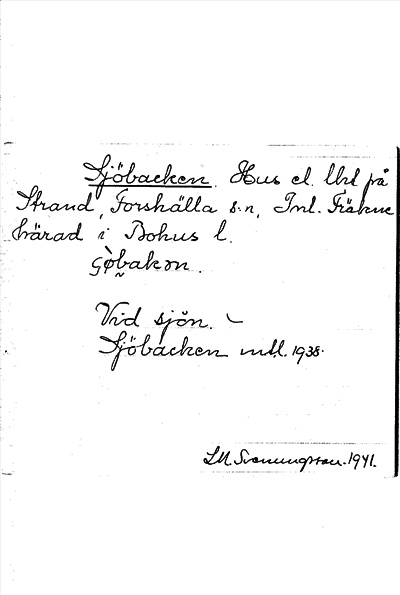 Sjöbacken. Hus el. lht på
Strand, Forshälla s:n, Inl. Fräkne
härad i Bohus l.
çòbakən.
Vid sjön.
Sjöbacken mtl. 1938.
LM Svenungsson. 1941.